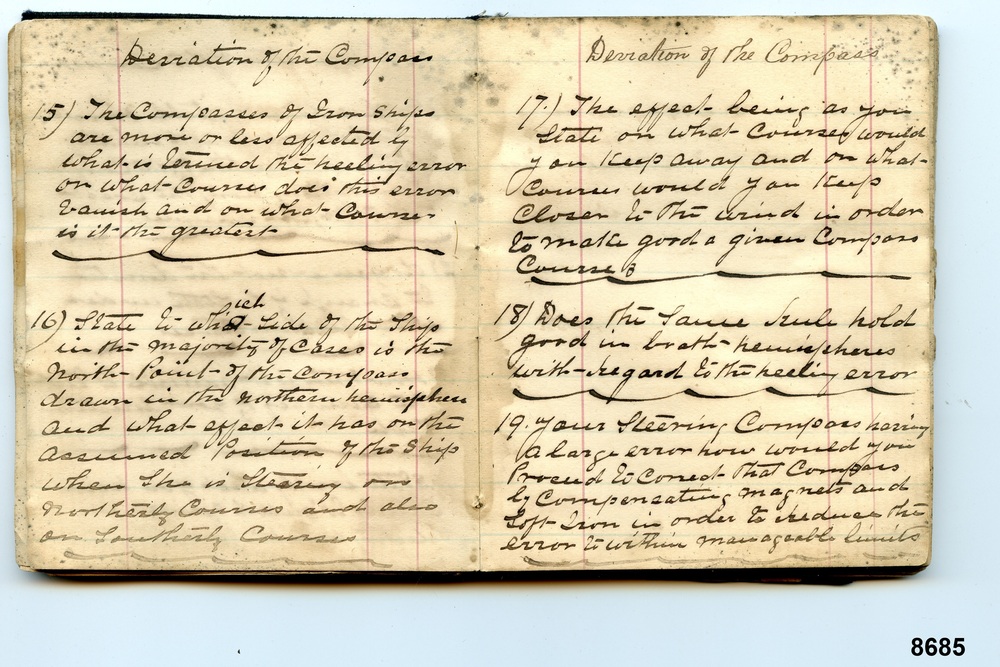 Deviation of the Compass
15) The Compasses of Iron Ships
are more or less affected by
what is termed the heeling error
on what Courses does this error
vanish and on what Courses
is it the greatest
16) State to which Side of the Ship
in the majority of Cases is the
North Point of the Compass
drawn in the northern hemisphere
and what effect it has on the
assumed Position of the Ship
when She is Steering on
Northerly Courses and also
on Southerly Courses
Deviation of the Compass
17.) The effect being as you
State on what Courses would
you Keep away and on what
Courses would you Keep
Closer to the wind in order
to make good a given Compass
Course
18) Does the Same rule hold
good in both hemispheres
with regard to the heeling error
19. Your Steering Compass having
a large error how would you
Proceed to Correct that Compass
by Compensating magnets and
Soft Iron in order to reduce the
error to within manageable limits
8685